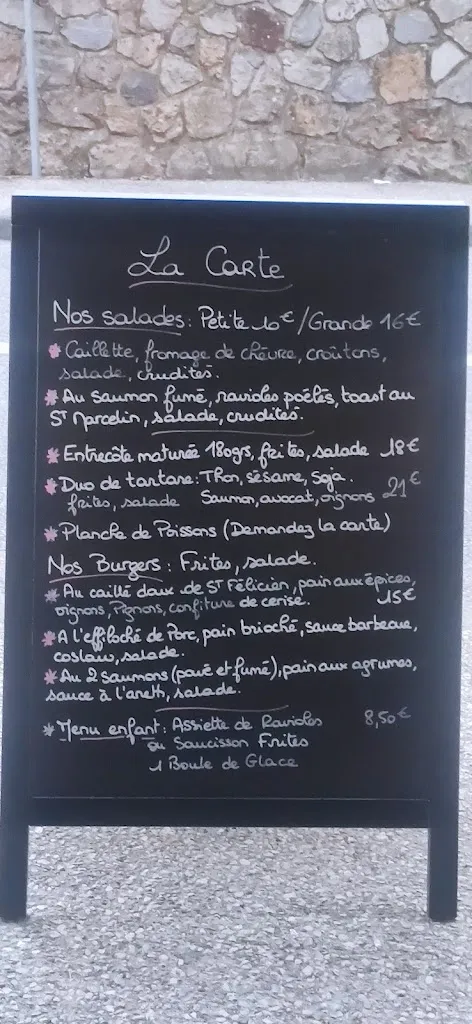 La Carte
Nos salades: Petite 10€ / Grande 16€
* Caillette, fromage de chèvre, croûtons,
salade, crudités.
* Au saumon fumé, ravioles poêlés, toast au
St Marcelin, salade, crudités.
* Entrecôte maturée 180grs, frites, salade 18€
* Duo de tartare: Thon, sésame, soja.
frites, salade Saumon, avocat, oignons 21€
* Planche de Poissons (Demandez la carte)
Nos Burgers: Frites, salade.
* Au caillé doux de St Félicien, pain aux épices,
oignons, Pignons, confiture de cerise. 15€
* A l'effiloché de Porc, pain brioché, sauce barbecue,
coslaw, salade.
* Au 2 saumons (pavé et fumé), pain aux agrumes,
sauce à l'aneth, salade.
* Menu enfant: Assiette de Ravioles 8,50€
ou Saucisson Frites
1 Boule de Glace